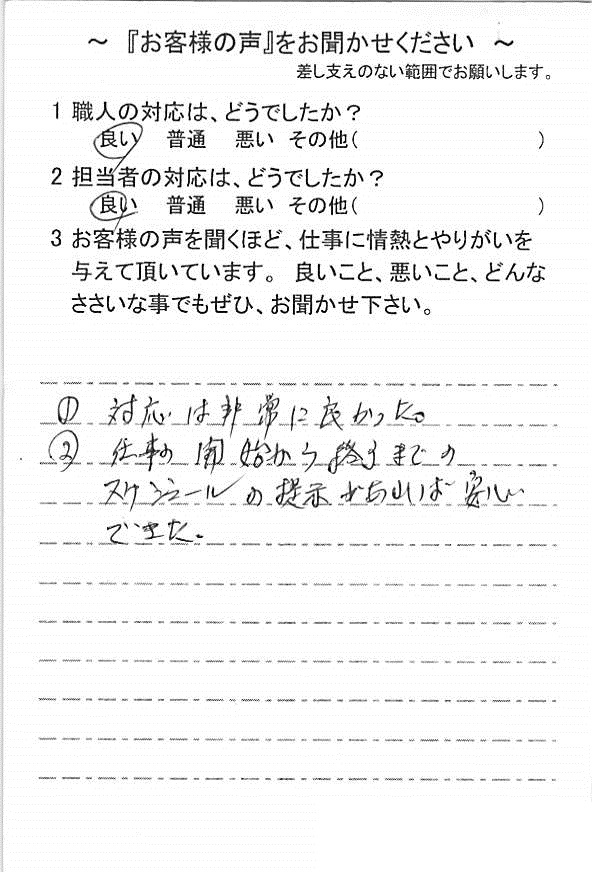 ～ 『お客様の声』をお聞かせください ～
差し支えのない範囲でお願いします。
1 職人の対応は、どうでしたか？
良い 普通 悪い その他( )
2 担当者の対応は、どうでしたか？
良い 普通 悪い その他( )
3 お客様の声を聞くほど、仕事に情熱とやりがいを
与えて頂いています。 良いこと、悪いこと、どんな
ささいな事でもぜひ、お聞かせ下さい。
① 対応は非常に良かった。
② 仕事の開始から終了までの
スケジュールの提示があれば安心
できた。